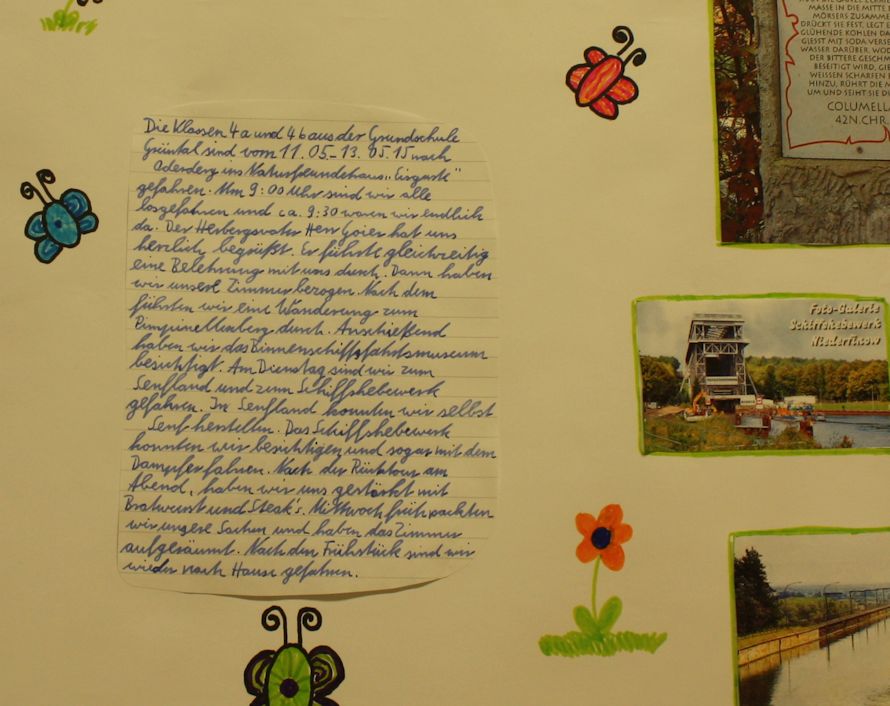 Die Klassen 4a und 4b aus der Grundschule
Grüntal sind vom 11.05.-13.05.15 nach
Oderberg ins Naturfreundehaus "Eisguste"
gefahren. Um 9:00 Uhr sind wir alle
losgefahren und ca. 9:30 waren wir endlich
da. Der Herbergsvater Herr Goier hat uns
herzlich begrüßt. Er führte gleichzeitig
eine Belehrung mit uns durch. Dann haben
wir unsere Zimmer bezogen. Nach dem
führten wir eine Wanderung zum
Pimpinellenberg durch. Anschießend
haben wir das Binnenschifffahrtsmuseum
besichtigt. Am Dienstag sind wir zum
Senfland und zum Schiffshebewerk
gefahren. Im Senfland konnten wir selbst
Senf herstellen. Das Schiffshebewerk
konnten wir besichtigen und sogar mit dem
Dampfer fahren. Nach der Rücktour am
Abend, haben wir uns gestärkt mit
Bratwurst und Steak's. Mittwoch früh packten
wir unsere Sachen und haben das Zimmer
aufgeräumt. Nach den Frühstück sind wir
wieder nach Hause gefahren.
MASSE IN DIE MITTE
MÖRSERS ZUSAMME
DRÜCKT SIE FEST, LEGT
GLÜHENDE KOHLEN DA
GIESST MIT SODA VERSE
WASSER DARÜBER, WOD
DER BITTERE GESCHM
BESEITIGT WIRD, GIE
WEISSEN SCHARFEN
HINZU, RÜHRT DIE M
UM UND SEIHT SIE DU
COLUMELLA
42N.CHR
Foto-Galerie
Schiffshebewerk
Niederfinow